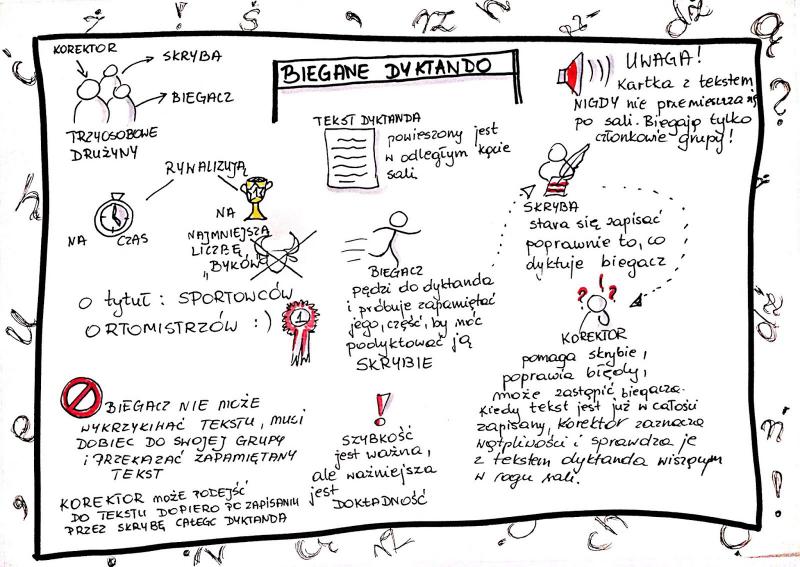 BIEGANE DYKTANDO
KOREKTOR
SKRYBA
BIEGACZ
TRZYOSOBOWE
DRUŻYNY
RYWALIZUJĄ
NA CZAS
NA
NAJMNIEJSZĄ
LICZBĘ
"BYKÓW"
O tytuł: SPORTOWCÓW
ORTOMISTRZÓW :)
1
BIEGACZ NIE MOŻE
WYKRZYKIWAĆ TEKSTU, MUSI
DOBIEC DO SWOJEJ GRUPY
i PRZEKAZAĆ ZAPAMIĘTANY
TEKST
KOREKTOR MOŻE PODEJŚĆ
DO TEKSTU DOPIERO PO ZAPISANIU
PRZEZ SKRYBĘ CAŁEGO DYKTANDA
TEKST DYKTANDA
powieszony jest
w odległym kącie
sali
BIEGACZ
pędzi do dyktanda
i próbuje zapamiętać
jego część, by móc
podyktować ją
SKRYBIE
!
SZYBKOŚĆ
jest ważna,
ale ważniejsza
jest
DOKŁADNOŚĆ
UWAGA!
Kartka z tekstem
NIGDY nie przemieszcza się
po sali. Biegają tylko
członkowie grupy!
SKRYBA
stara się zapisać
poprawnie to, co
dyktuje biegacz
? ! ?
KOREKTOR
pomaga skrybie,
poprawia błędy,
może zastąpić biegacza.
Kiedy tekst jest już w całości
zapisany, korektor zaznacza
wątpliwości i sprawdza je
z tekstem dyktanda wiszącym
w rogu sali.